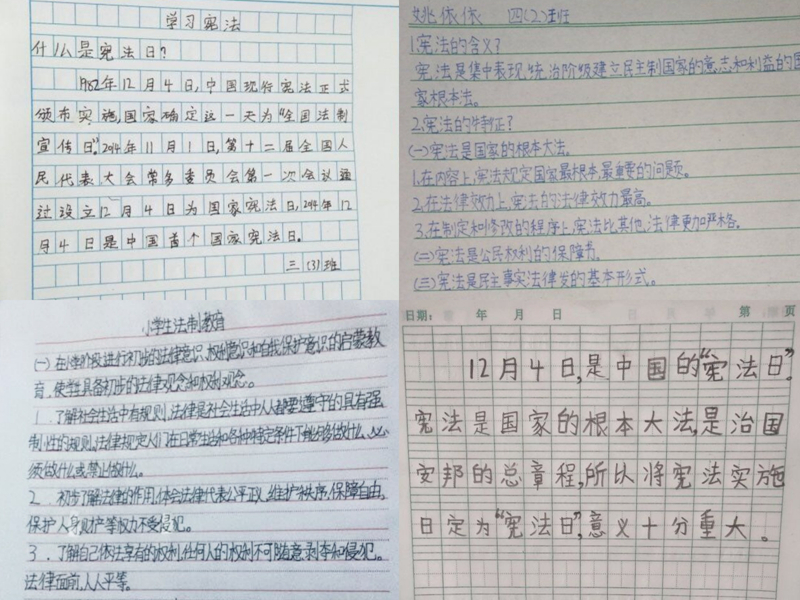 学习宪法
什么是宪法日？
1982年12月4日，中国现行宪法正式
颁布实施，国家确定这一天为“全国法制
宣传日”。2014年11月1日，第十二届全国人
民代表大会常务委员会第一次会议通
过设立12月4日为国家宪法日，2014年12
月4日是中国首个国家宪法日。
三（3）班
姚依依 四（2）班
1.宪法的含义？
宪法是集中表现统治阶级建立民主制国家的意志和利益的国
家根本法。
2.宪法的特征？
（一）宪法是国家的根本大法。
1.在内容上，宪法规定国家最根本、最重要的问题。
2.在法律效力上，宪法的法律效力最高。
3.在制定和修改的程序上，宪法比其他法律更加严格。
（二）宪法是公民权利的保障书。
（三）宪法是民主事实法律发的基本形式。
小学生法制教育
（一）在小学阶段进行初步的法律意识、权利意识和自我保护意识的启蒙教
育，使学生具备初步的法律观念和权利观念。
1.了解社会生活中有规则，法律是社会生活中人人都要遵守的具有强
制性的规则。法律规定人们在日常生活和各种特定条件下能够做什么、必
须做什么或禁止做什么。
2.初步了解法律的作用，体会法律代表公平正义，维护秩序，保障自由，
保护人身财产等权力不受侵犯。
3.了解自己依法享有的权利，任何人的权利不可随意剥夺和侵犯。
法律面前，人人平等。
日期： 年 月 日 第 页
12月4日，是中国的“宪法日”。
宪法是国家的根本大法，是治国
安邦的总章程，所以将宪法实施
日定为“宪法日”，意义十分重大。